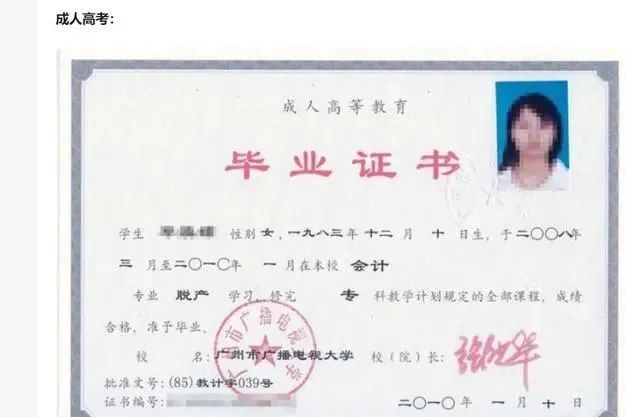 成人高考：
成人高等教育
毕业证书
学生 性别 女，一九八三年 十二 月 十 日生，于二〇〇八年
三 月至二〇一〇年 一 月在本校 会计
专业 脱产 学习，修完 专 科教学计划规定的全部课程，成绩
合格，准予毕业。
校 名：广州市广播电视大学 校（院）长：
批准文号：(85)教计字039号
证书编号：
二〇一〇年 一 月 十 日
广州市广播电视大学